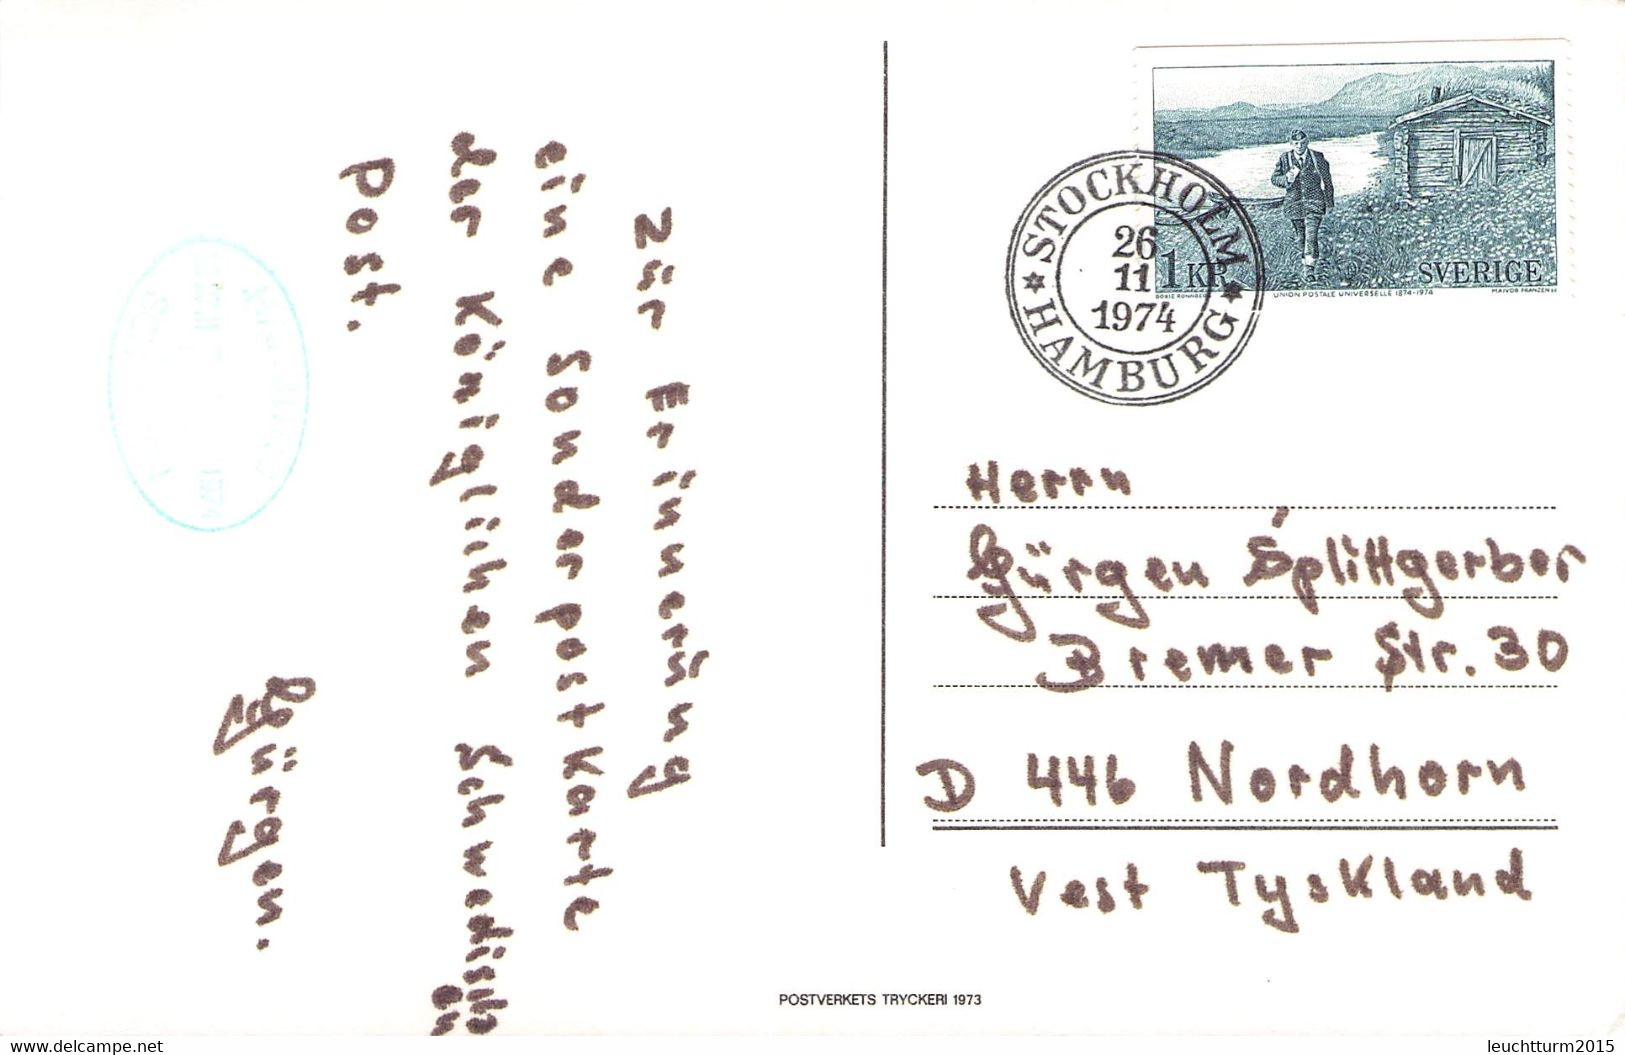 Zur Erinnerung
eine Sonderpostkarte
der Königlichen Schwedischen
Post.
Jürgen.
1974
STOCKHOLM
26
11
1974
HAMBURG
1 KR
SVERIGE
UNION POSTALE UNIVERSELLE 1874-1974
MAJVOR FRANZÉN SC
Herrn
Jürgen Splittgerber
Bremer Str. 30
D 446 Nordhorn
Vest Tyskland
POSTVERKETS TRYCKERI 1973
www.delcampe.net
leuchtturm2015